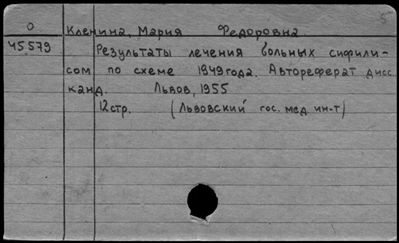 5
О Кленина, Мария Федоровна
45579 Результаты лечения больных сифили-
сом по схеме 1949 года. Автореферат дисс
канд. Львов, 1955
12 стр. (Львовский гос. мед. ин-т)